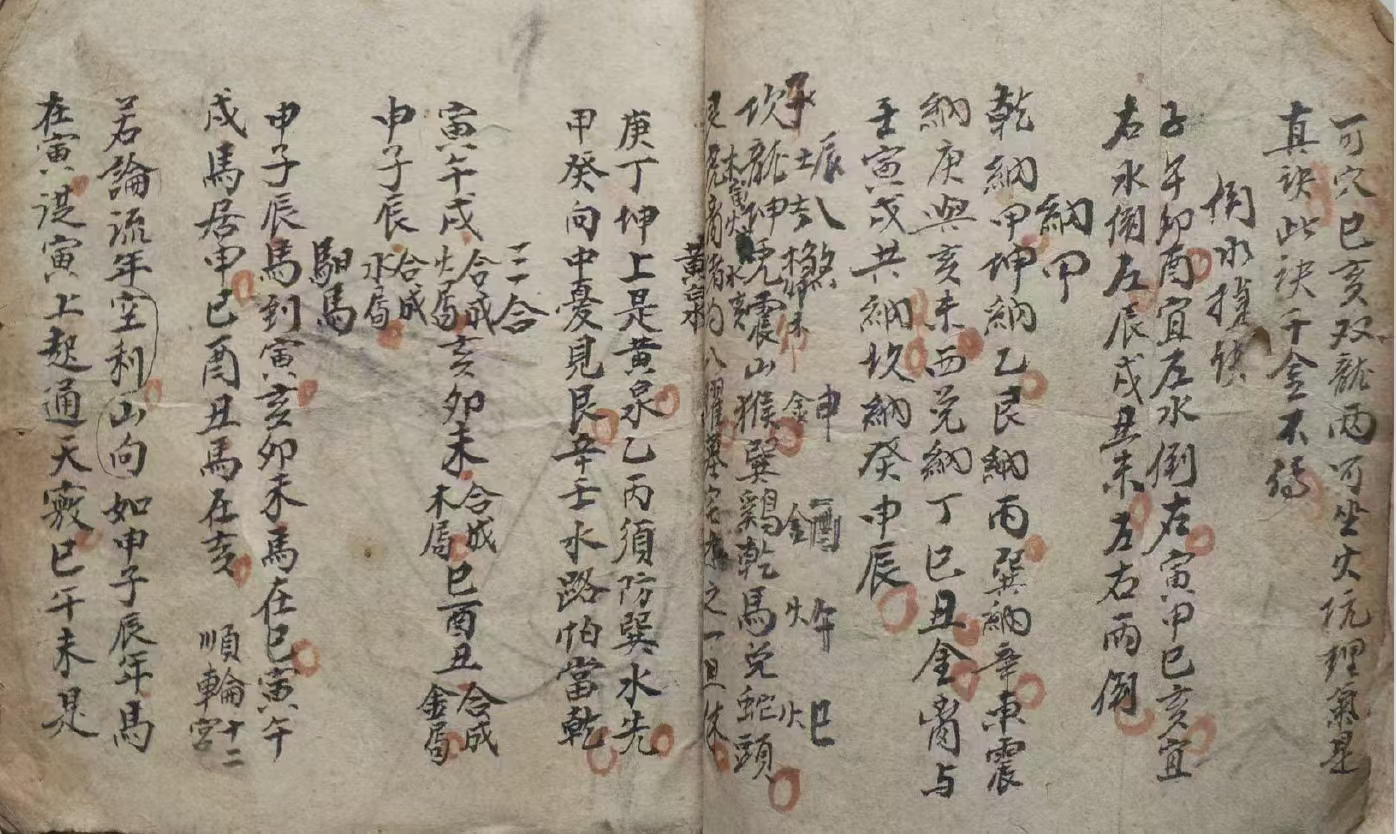 可穴巳亥双龍兩可坐穴坑理氣是
真訣此訣千金不傳
倒水
子午卯酉宜左水倒右寅甲巳亥宜
右水倒左辰戌丑未左右兩倒
納甲
乾納甲坤納乙艮納丙巽納辛東震
納庚與亥未西兌納丁巳丑金商与
壬寅戌共納坎納癸申辰
辰八煞 申酉午巳
坎龍坤兔震山猴巽鷄乾馬兌蛇頭
黃泉
庚丁坤上是黃泉乙丙須防巽水先
甲癸向中憂見艮辛壬水路怕當乾
三合
寅午戌合成火局亥卯未合成木局巳酉丑合成金局
申子辰合成水局
馹馬
申子辰馬到寅亥卯未馬在巳寅午
戌馬居申巳酉丑馬在亥 順輪十二宮
若論流年空利山向如申子辰年馬
在寅從寅上起通天竅巳午未是